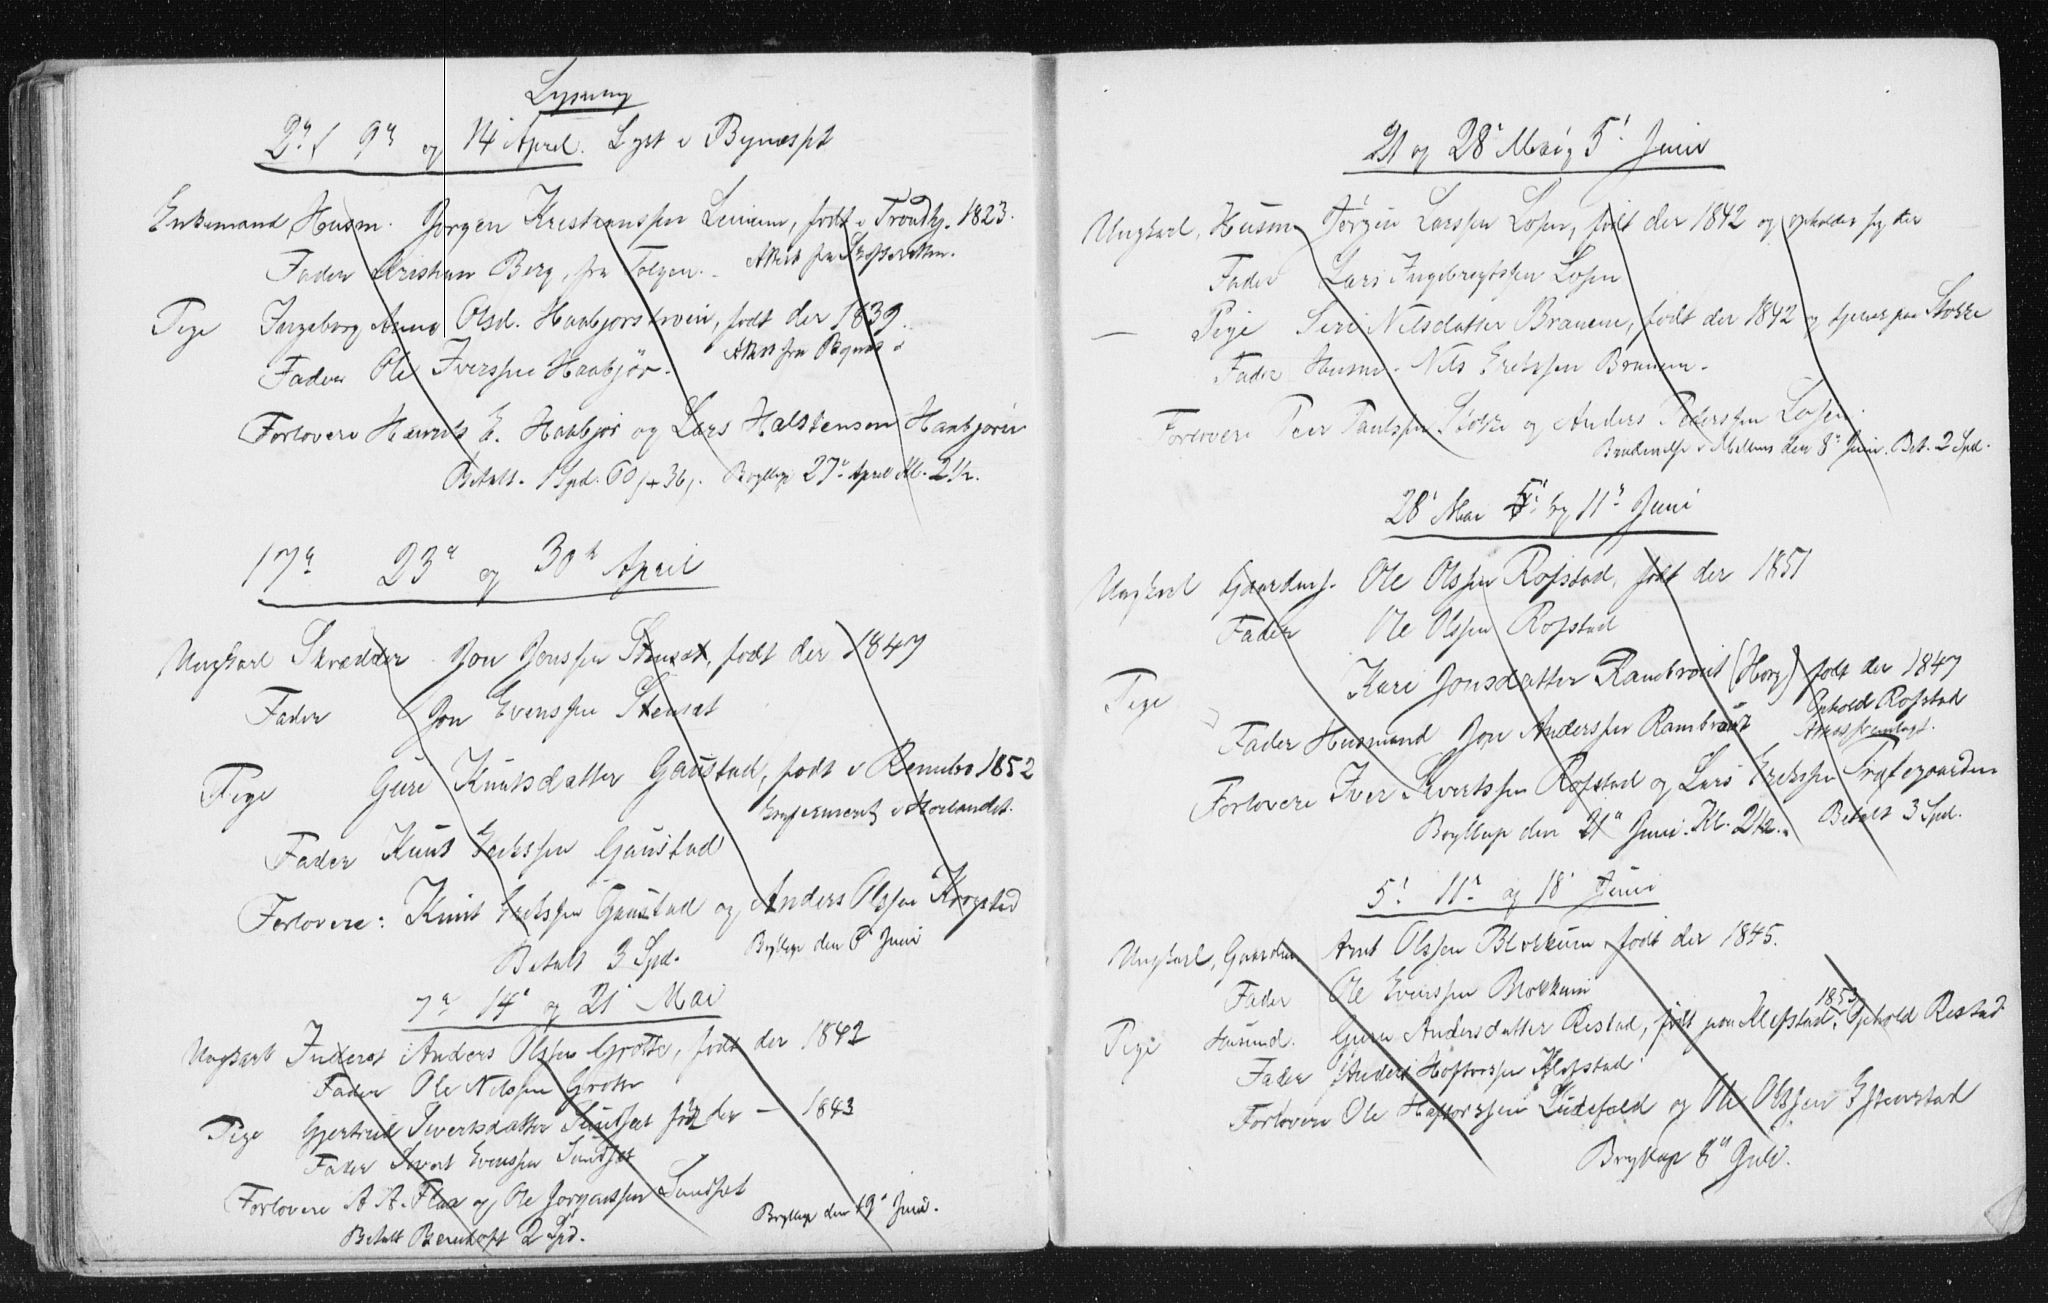 Lysning
2' 9' og 14' April. Lyst i Bynæsset
Enkemand Husm. Jørgen Kristianssen Leinum, født i Trondhj. 1823.
Fader Kristian Berg, fra Tolgen. Attest fra
Pige Ingeborg Anna Olsd. Haabjørshroen, født der 1839.
Fader Ole Iverssen Haabjør. Attest fra Bynæs
Forlovere E. Haabjør og Lars Halstensen Haabjøren
Betalt. 1 Spd. 60 + 36. Bryllup 27' April Kl. 2½.
17' 23' og 30' April
Ungkarl Skrædder Jon Jonssen Stensæt, født der 1847
Fader Jon Evenssen Stensæt
Pige Guri Knutsdatter Gaustad, født i Rennebo 1852
Confirmeret i
Fader Knut Erikssen Gaustad
Forlovere: Knut Erikssen Gaustad og Anders Olssen Krogstad
Betalt 3 Spd. Bryllup den 6' Juni
7' 14' og 21' Mai
Ungkarl Inderst Anders Olssen Grøtte, født der 1842
Fader Ole Nilssen Grøtte
Pige Gjertrud Sivertsdatter Sundset født der — 1843
Fader Sivert Evenssen Sundset
Forlovere A A. Flaa og Ole Jørgenssen Sundset
Betalt 2 Spd. Bryllup den 19' Juni.
21 og 28' Mai og 5' Juni
Ungkarl, Husm Jørgen Larssen Losen, født der 1842 og opholder sig der
Fader Lars Ingebregtssen Losen
— Pige Siri Nilsdatter Brauem, født der 1842 og tjener paa Støkke
Fader Husm. Nils Erikssen Brauem.
Forlovere Peer Paulssen Støkke og Anders Pederssen Losen.
Brudevielse i Melhus den 8' Juni. Bet. 2 Spd.
28' Mai 5' og 11' Juni
Ungkarl Gaardmd. Ole Olssen Rofstad, født der 1851
Fader Ole Olssen Rofstad
Pige Kari Jonsdatter Rambraut (Horg) født der 1847
Ophold Rofstad
Fader Husmand Jon Anderssen Rambraut Attest fremlagt.
Forlovere Iver Sivertssen Rofstad og Lars Erikssen Prestegaarden
Bryllup den 21' Juni. Kl. 2½. Betalt 3 Spd.
5' 11' og 18' Juni
Ungkarl, Gaardm Arnt Olssen Blokkum født der 1845.
Fader Ole Evenssen Blokkum
Pige Husmd. Guru Andersdatter Restad, født paa Klefstad 1853, Ophold Restad
Fader Anders Haftorssen Klefstad
Forlovere Ole Haftorssen og Ole Olssen
Bryllup 8' Juli.